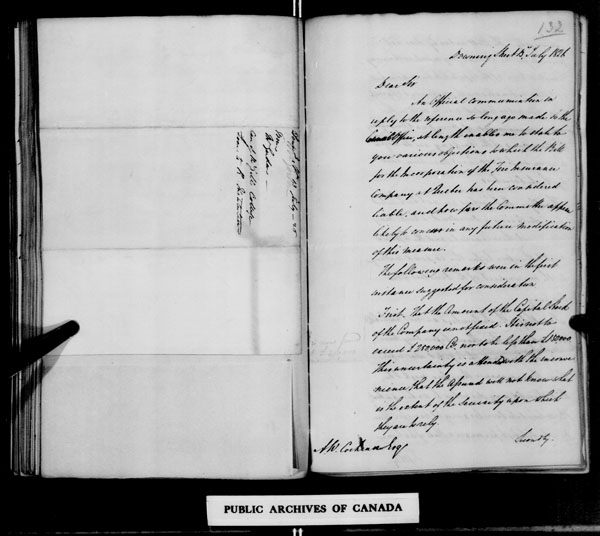 132
Downing Street July 1826
Dear Sir
An Official communication in
reply to the reference so long ago made to the
Council Office, at length enables me to state to
you various objections to which the Bill
for the Incorporation of the Fire Insurance
Company at Quebec has been considered
liable, and how far the Committee appear
likely to concur in any future modification
of this measure.
The following remarks were in the first
instance suggested for consideration
First. That the Amount of the Capital Stock
of the Company is not fixed. It is not to
exceed £250000 Cy. nor to be less than
This uncertainty is attended with the inconve
nience that the Assured will not know what
is the extent of the Security upon which
they are to rely.
Secondly.
A.W. Cochrane Esq
PUBLIC ARCHIVES OF CANADA